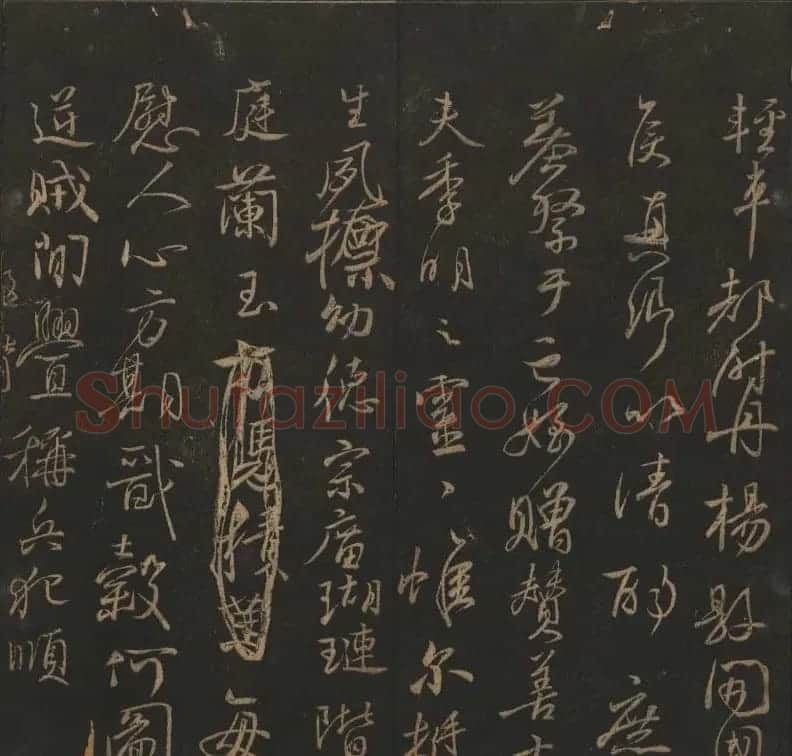 輕車都尉丹楊縣開國
侯真卿以清酌庶
羞祭于亡姪贈贊善大
夫季明之靈惟尔挺
生夙摽幼德宗廟瑚璉階
庭蘭玉方憑積善每
慰人心方期戩穀何圖
逆賊閒釁稱兵犯順
Shufaziliao.COM